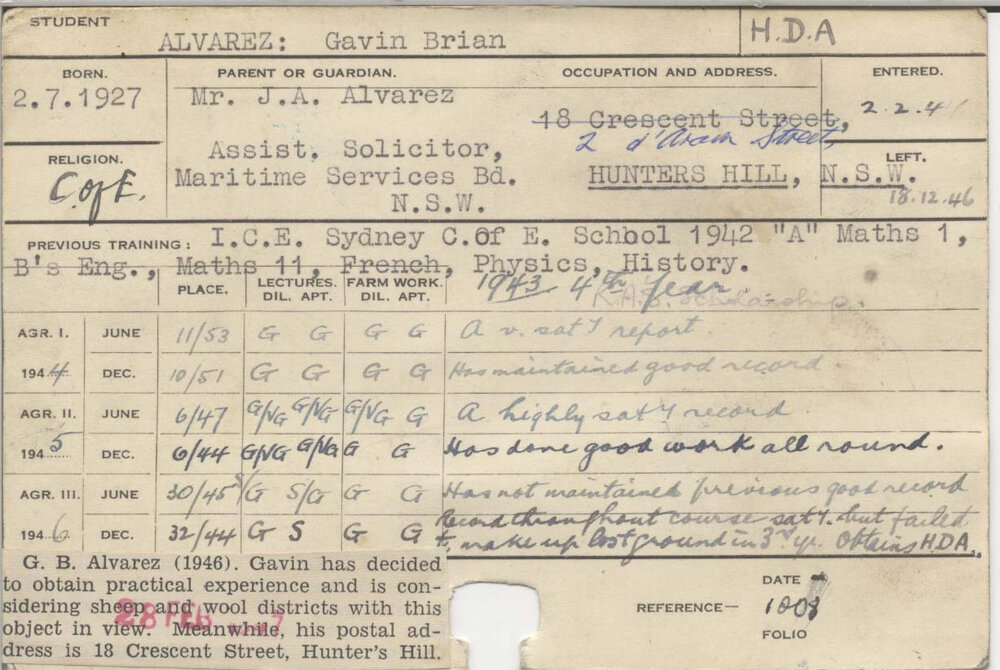 STUDENT
ALVAREZ: Gavin Brian
H.D.A
BORN.
PARENT OR GUARDIAN.
OCCUPATION AND ADDRESS.
ENTERED.
2.7.1927
Mr. J.A. Alvarez
18 Crescent Street,
2.2.4
2 d'Aram Street,
RELIGION.
Assist. Solicitor,
LEFT.
C. of E.
Maritime Services Bd.
HUNTERS HILL, N.S.W.
N.S.W.
18.12.46
PREVIOUS TRAINING: I.C.E. Sydney C.of E. School 1942 "A" Maths 1,
B's Eng., Maths 11, French, Physics, History.
1943 4th Year
R.A.S. Scholarship.
PLACE. LECTURES. DIL. APT. FARM WORK. DIL. APT.
AGR. I. JUNE 11/53 G G G G A v. sat'y report.
1944 DEC. 10/51 G G G G Has maintained good record.
AGR. II. JUNE 6/47 G/VG G/VG G/VG G A highly sat'y record
1945 DEC. 6/44 G/VG G/VG G G Has done good work all round.
AGR. III. JUNE 30/45 S/G S/G G G Has not maintained previous good record
1946 DEC. 32/44 G S G G Record throughout course sat'y. but failed
to make up lost ground in 3rd yr. Obtains H.D.A.
G. B. Alvarez (1946). Gavin has decided
to obtain practical experience and is con-
sidering sheep and wool districts with this
object in view. Meanwhile, his postal ad-
dress is 18 Crescent Street, Hunter's Hill.
28 FEB
DATE
REFERENCE—
1008
FOLIO